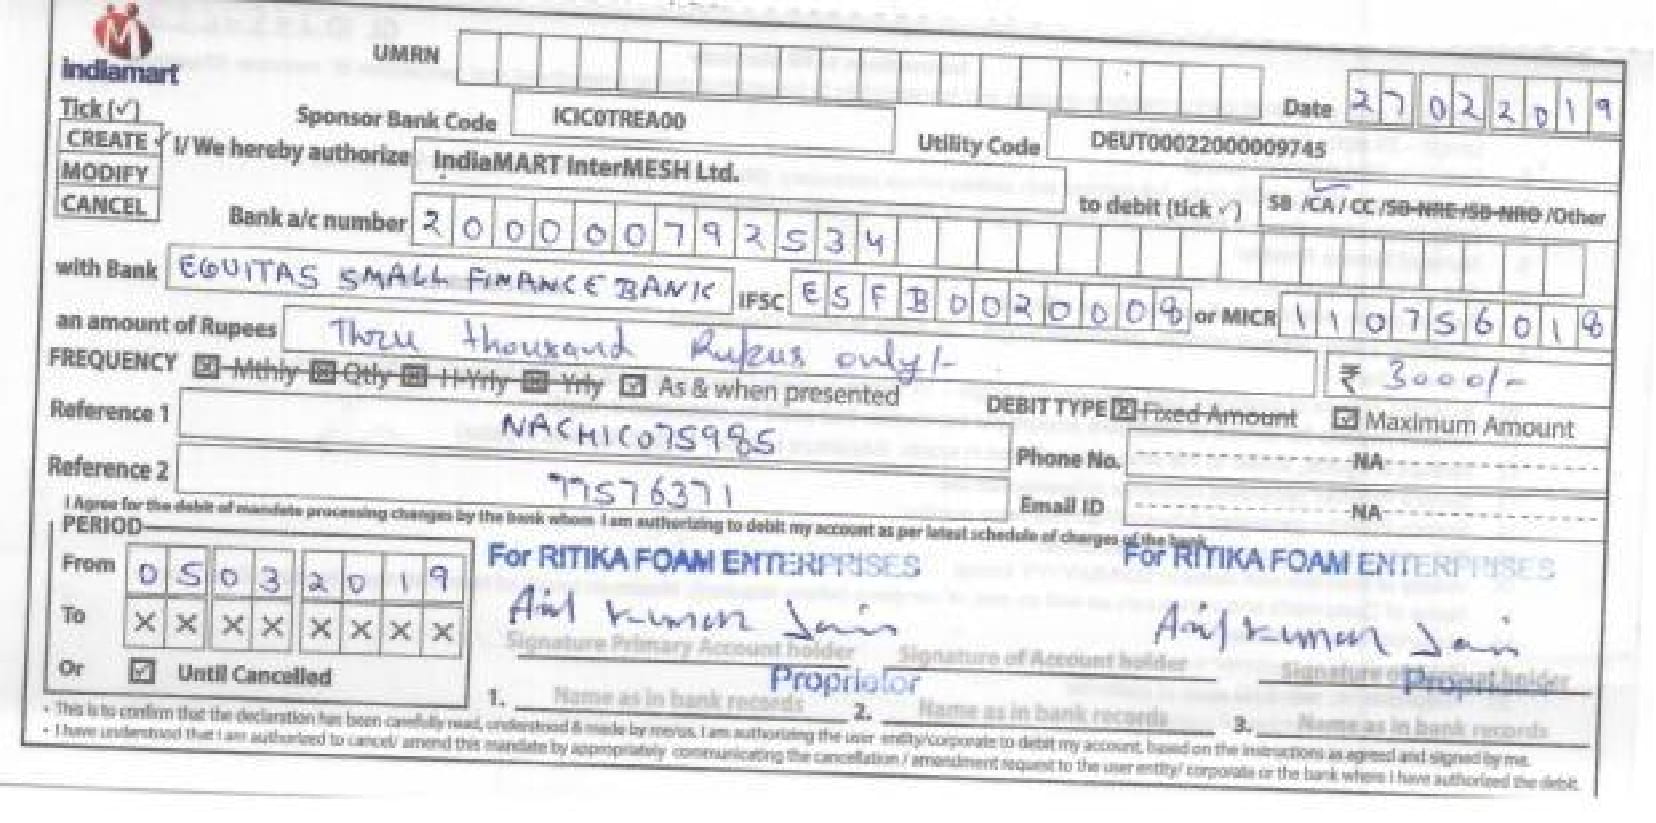 indiamart
UMRN
Date 27022019
Tick (✓)
Sponsor Bank Code ICIC0TREA00 Utility Code DEUT00022000009745
CREATE ✓ I/ We hereby authorize IndiaMART InterMESH Ltd.
MODIFY
CANCEL
to debit (tick ✓) SB /CA / CC /SB-NRE /SB-NRO /Other
Bank a/c number 200000792534
with Bank EQUITAS SMALL FINANCE BANK IFSC ESFB0020008 or MICR 110756018
an amount of Rupees Three thousand Rupees only/- ₹ 3000/-
FREQUENCY ☒ Mthly ☒ Qtly ☒ H-Yrly ☒ Yrly ☑ As & when presented DEBIT TYPE ☒ Fixed Amount ☑ Maximum Amount
Reference 1 NACHIC075985 Phone No. NA
Reference 2 77576371 Email ID NA
I Agree for the debit of mandate processing charges by the bank whom I am authorizing to debit my account as per latest schedule of charges of the bank
PERIOD
From 05032019
To XXXXXXXX
Or ☑ Until Cancelled
For RITIKA FOAM ENTERPRISES For RITIKA FOAM ENTERPRISES
Anil Kumar Jain Anil Kumar Jain
Signature Primary Account holder Signature of Account holder Signature of Account holder
Proprietor Proprietor
1. Name as in bank records 2. Name as in bank records 3. Name as in bank records
• This is to confirm that the declaration has been carefully read, understood & made by me/us. I am authorizing the user entity/corporate to debit my account, based on the instructions as agreed and signed by me.
• I have understood that I am authorized to cancel/ amend this mandate by appropriately communicating the cancellation / amendment request to the user entity/ corporate or the bank where I have authorized the debit.